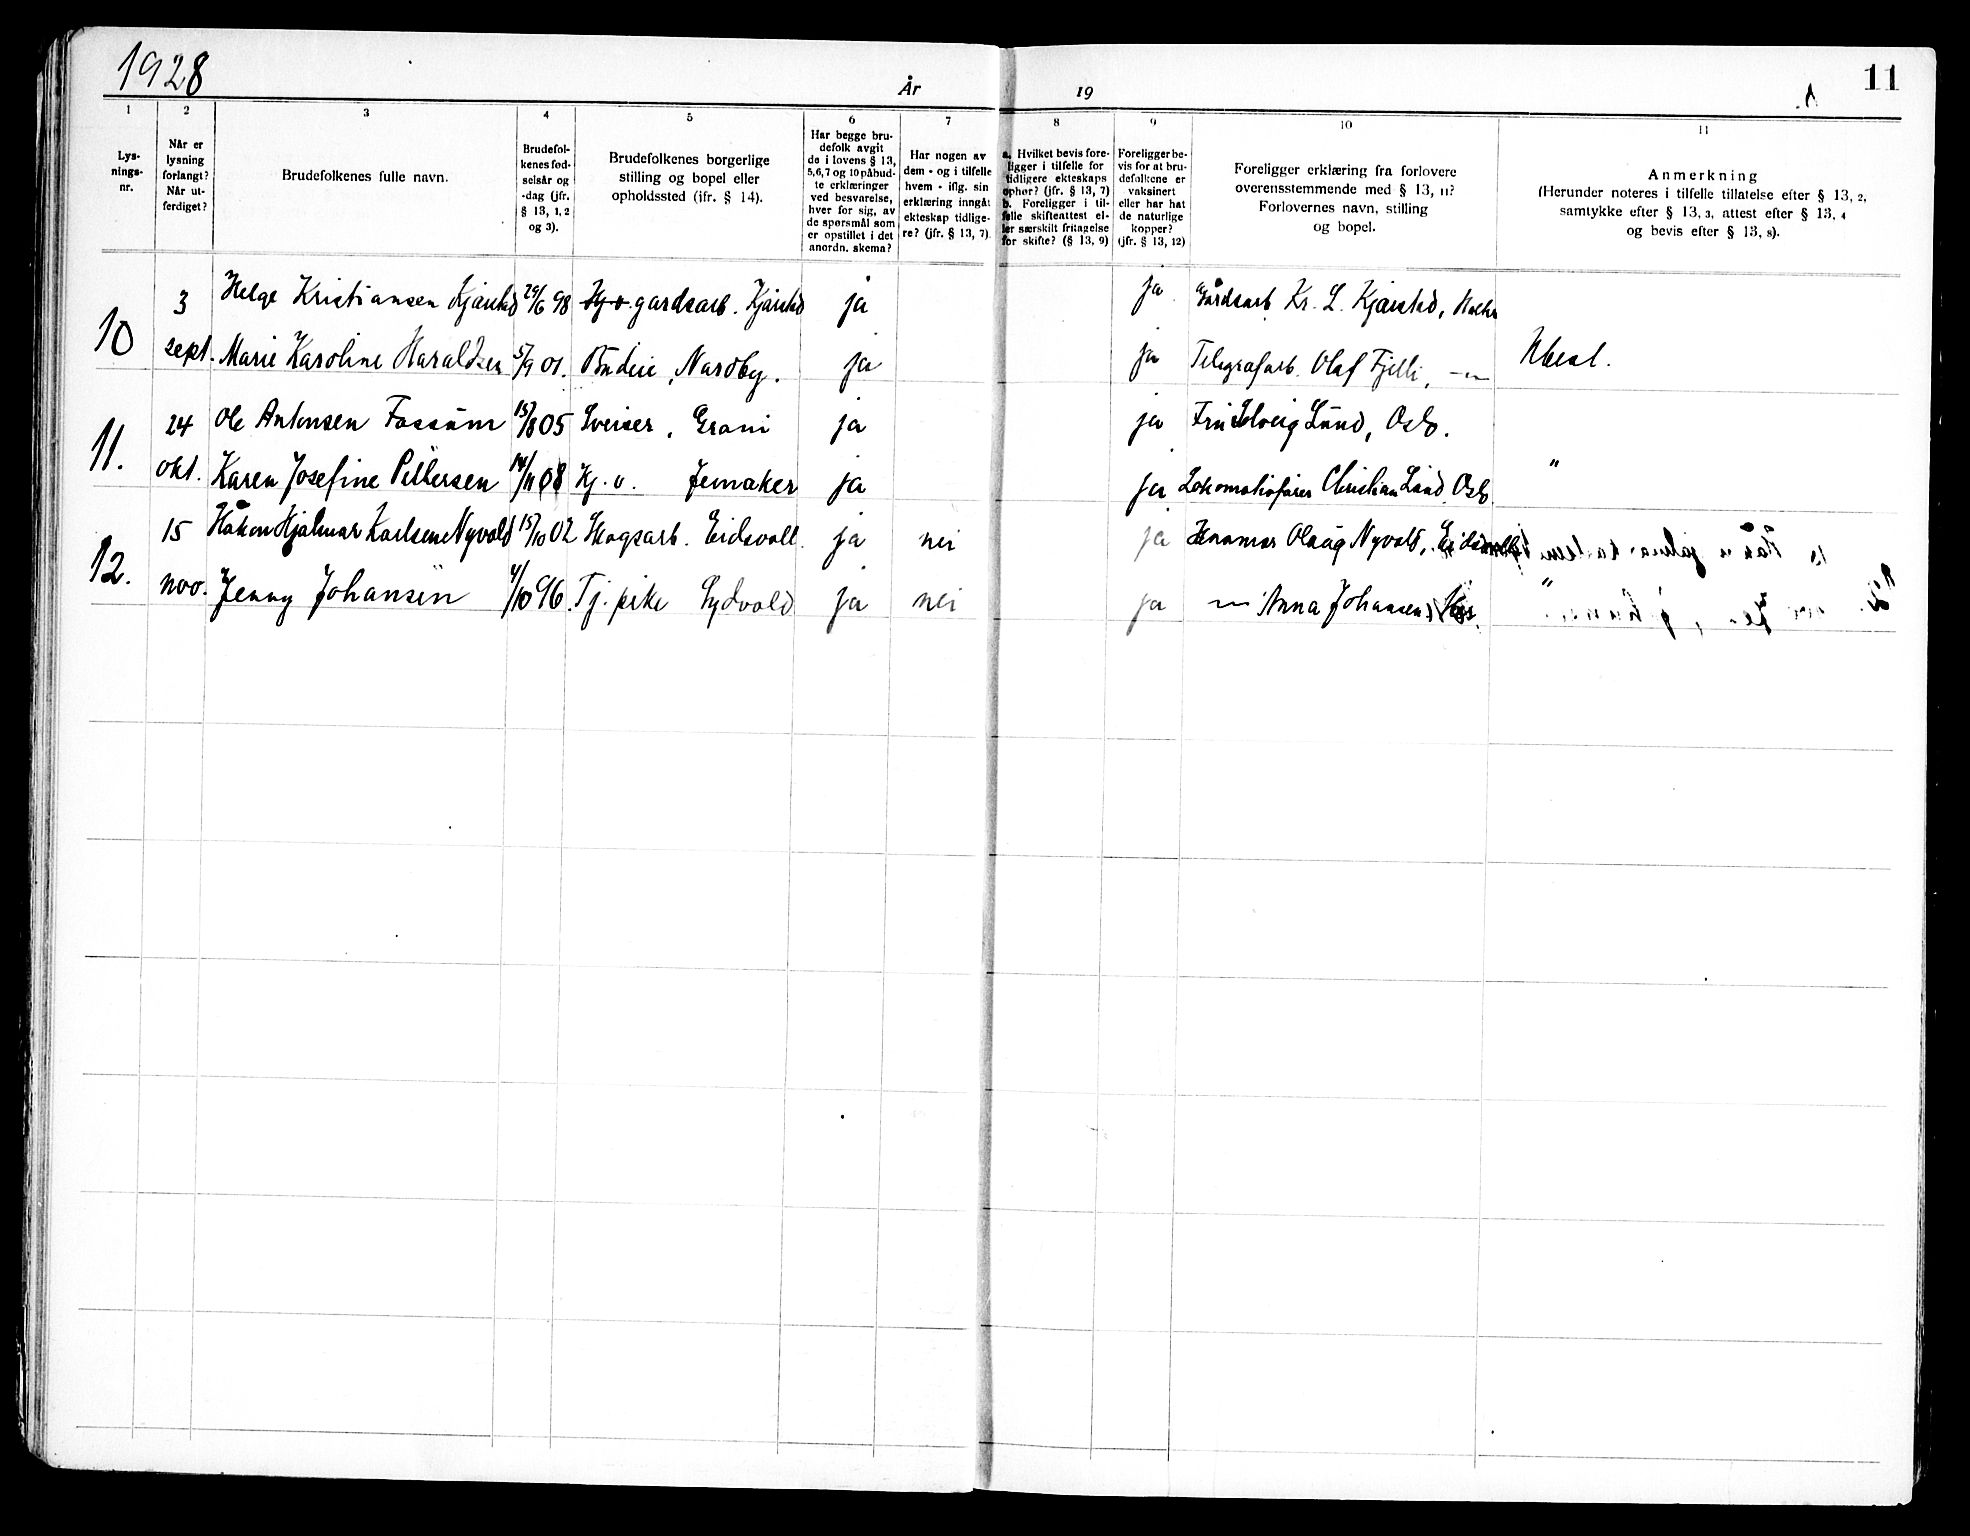 1928
År
19
11
1 2 3 4 5 6 7 8 9 10 11
Lys-
nings-
nr.
Når er
lysning
forlangt?
Når ut-
ferdiget?
Brudefolkenes fulle navn.
Brudefol-
kenes fød-
selsår og
-dag (jfr.
§ 13, 1, 2
og 3).
Brudefolkenes borgerlige
stilling og bopel eller
opholdssted (jfr. § 14).
Har begge bru-
defolk avgit
de i lovens § 13,
5,6,7 og 10 påbud-
te erklæringer
ved besvarelse,
hver for sig, av
de spørsmål som
er opstillet i det
anordn. skema?
Har nogen av
dem - og i tilfelle
hvem - iflg. sin
erklæring inngåt
ekteskap tidlige-
re? (jfr. § 13, 7).
a. Hvilket bevis fore-
ligger i tilfelle for
tidligere ekteskaps
ophør? (jfr. § 13, 7)
b. Foreligger i til-
felle skifteattest el-
ler særskilt fritagelse
for skifte? (§ 13, 9)
Foreligger be-
vis for at bru-
defolkene er
vaksinert
eller har hat
de naturlige
kopper?
(jfr. § 13, 12)
Foreligger erklæring fra forlovere
overensstemmende med § 13, 11?
Forlovernes navn, stilling
og bopel.
Anmerkning
(Herunder noteres i tilfelle tillatelse efter § 13, 2,
samtykke efter § 13, 3, attest efter § 13, 4
og bevis efter § 13, 8).
10 3 Helge Kristiansen Kjærstad 29/6 98 Hj. v. gardsarb. Kjærstad ja ja Gårdsarb Kr. L. Kjærstad,
sept. Marie Karoline Haraldsen 5/9 01. Budeie, Nordby. ja ja Telegrafarb. Olaf Fjelli, —"— Ubesl.
11. 24 Ole Antonsen Fossum 15/8 05 Sveiser, Grani ja ja Fru Solveig Lund, Oslo.
okt. Karen Josefine Pettersen 14/11 08 Hj. v. Jemaker ja ja Lokomotivfører Christian Lund Oslo "
12. 15 Håkon Hjalmar Karlsen Nyvold 15/10 02 Skogsarb. Eidsvoll ja nei ja Olaug Nyvold, Eidsvoll
nov. Jenny Johansen 4/10 96. Tj. pike Sydvold ja nei ja —"— Anna Johansen,